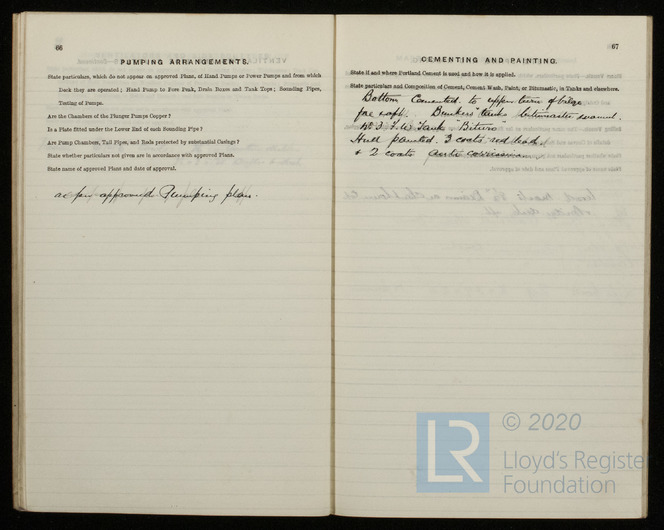 66
PUMPING ARRANGEMENTS.
State particulars, which do not appear on approved Plans, of Hand Pumps or Power Pumps and from which
Deck they are operated; Hand Pump to Fore Peak, Drain Boxes and Tank Tops; Sounding Pipes,
Testing of Pumps.
Are the Chambers of the Plunger Pumps Copper?
Is a Plate fitted under the Lower End of each Sounding Pipe?
Are Pump Chambers, Tail Pipes, and Rods protected by substantial Casings?
State whether particulars not given are in accordance with approved Plans.
State name of approved Plans and date of approval.
as per approved Pumping plan.
67
CEMENTING AND PAINTING.
State if and where Portland Cement is used and how it is applied.
State particulars and Composition of Cement, Cement Wash, Paint, or Bitumastic, in Tanks and elsewhere.
Bottom Cemented to upper turn of bilge
fore & aft. Bunkers
No 3 F.W. Tank "Bituro"
Hull painted. 3 coats red lead
& 2 coats
© 2020
LR
Lloyd's Register
Foundation